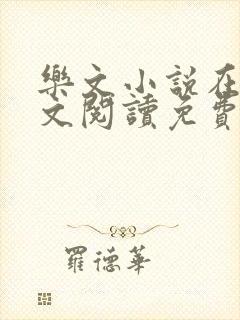 樂文小說在
文閱讀免費
羅德華